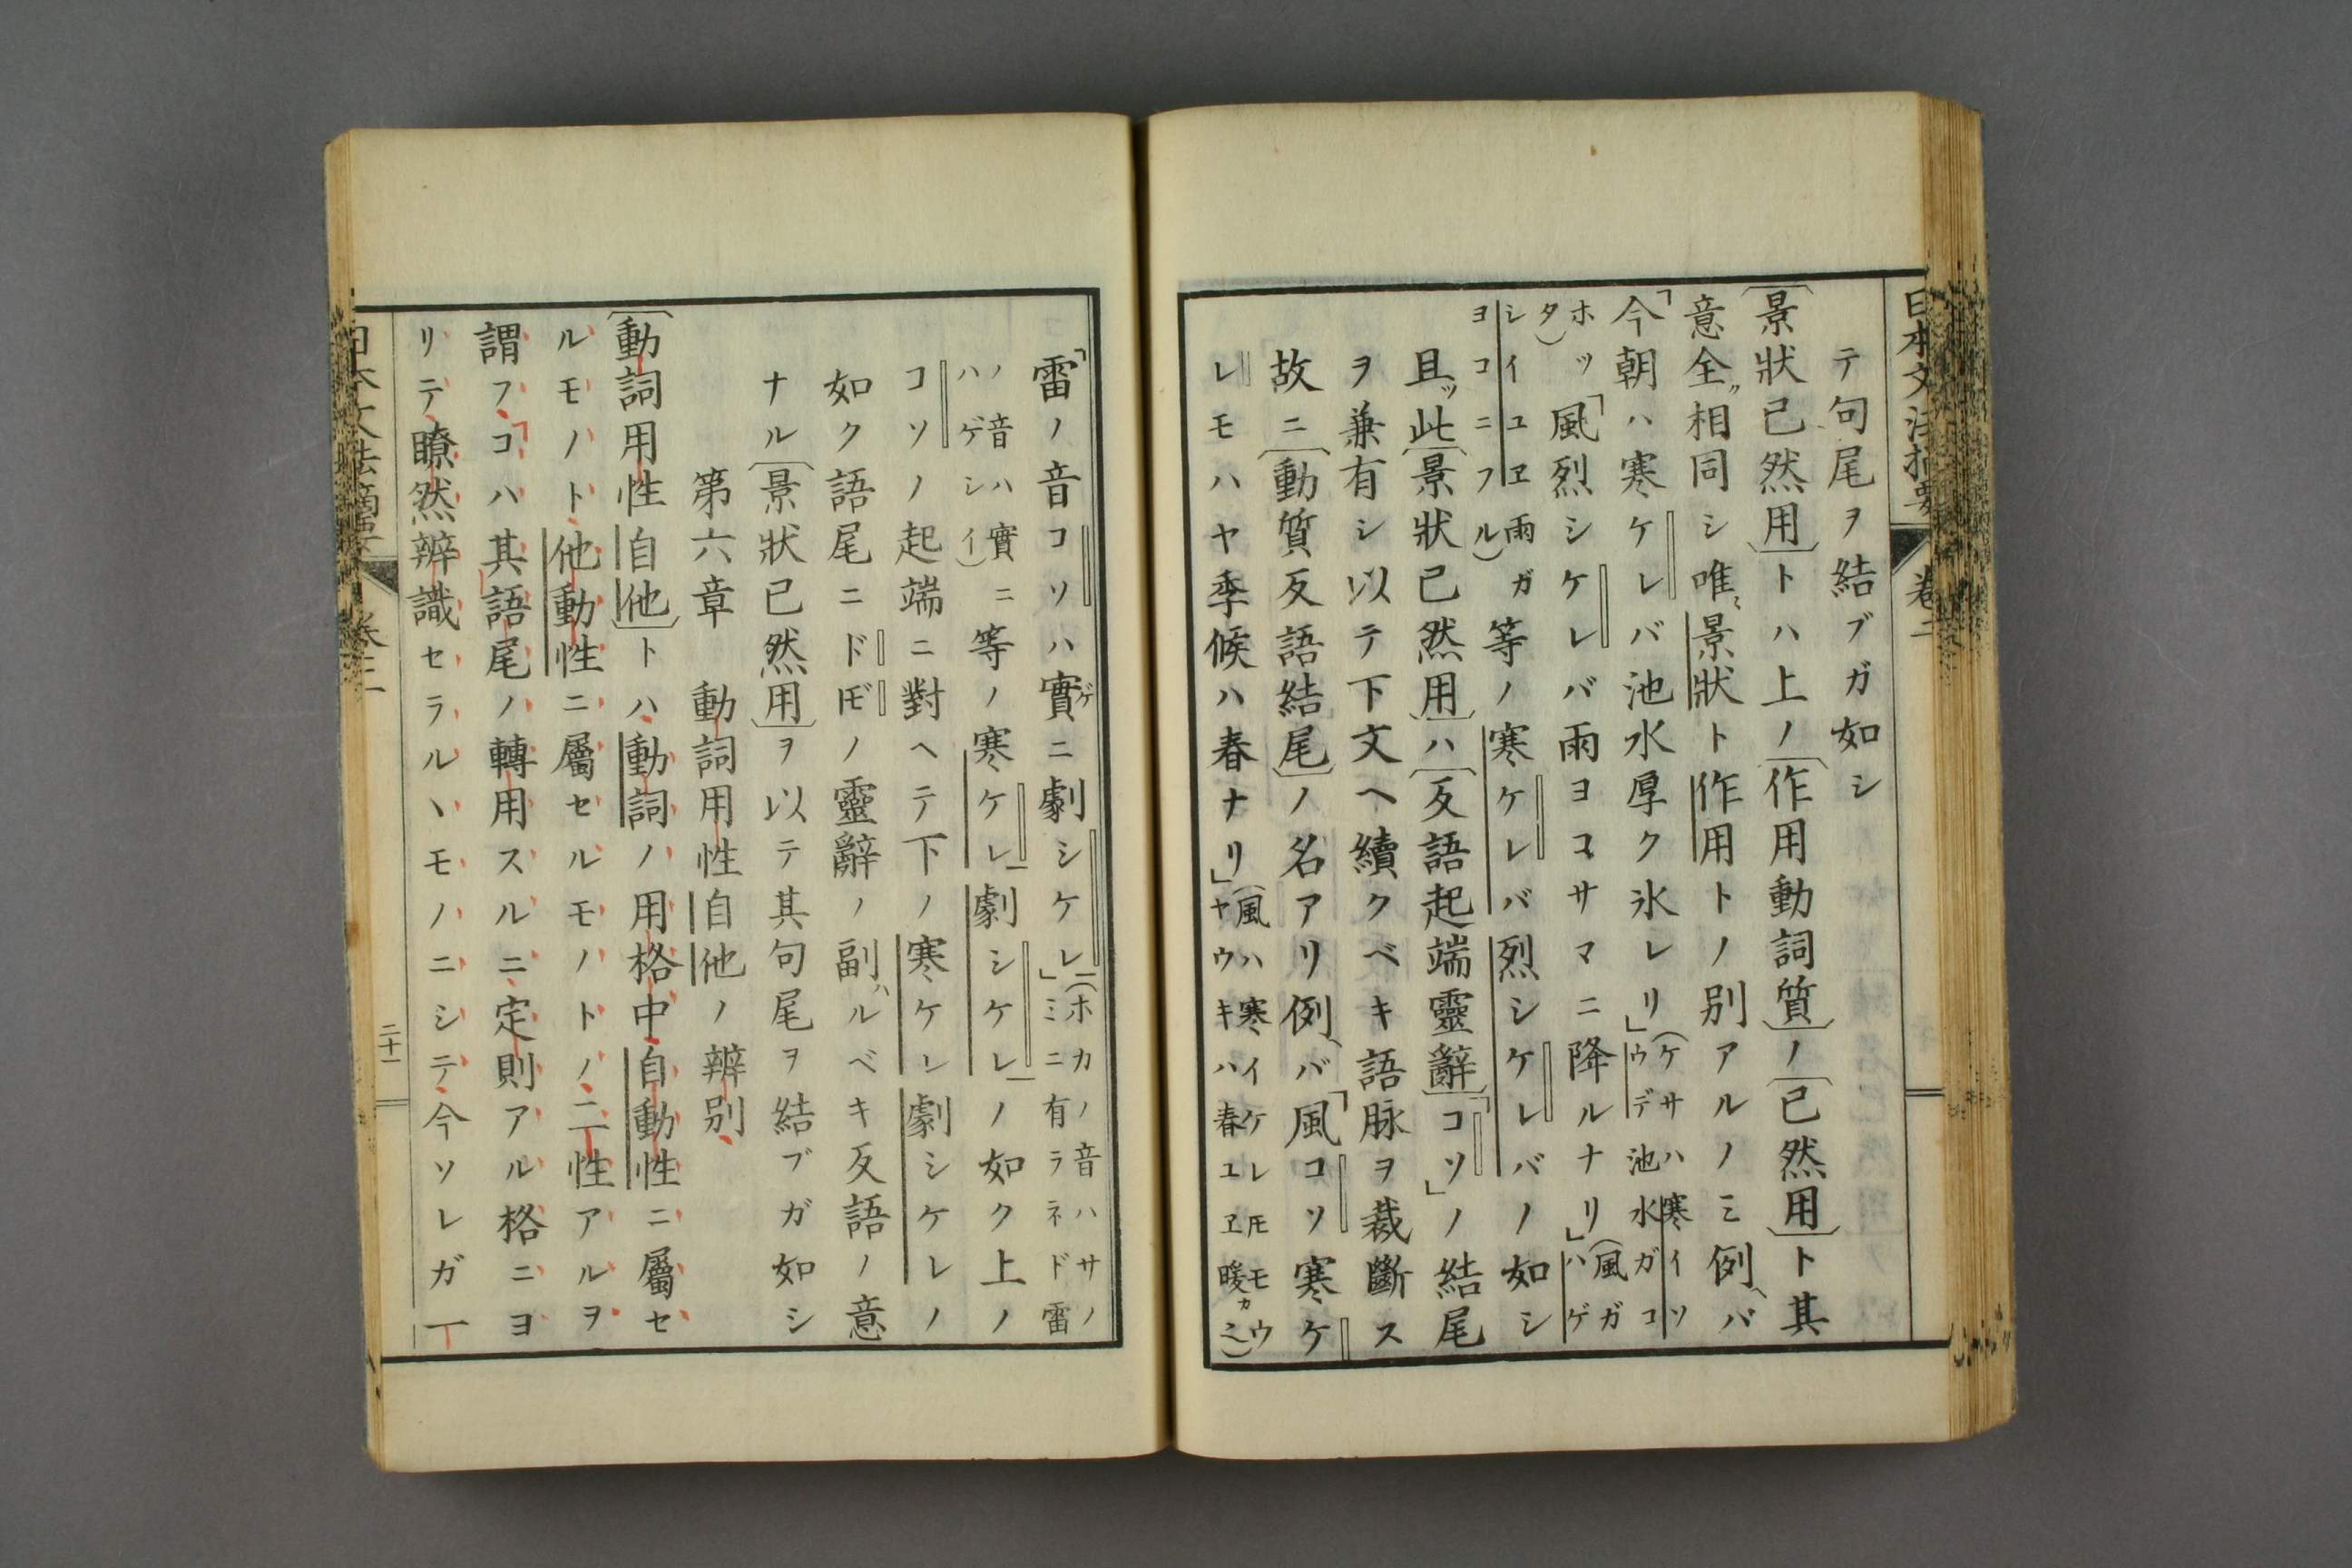 日本文法摘要 巻二
テ句尾ヲ結ブガ如シ
〔景狀已然用〕トハ上ノ〔作用動詞質〕ノ〔已然用〕ト其
意全ッ相同シ唯〻景狀ト作用トノ別アルノミ例ヘバ
「今朝ハ寒ケレバ池水厚ク氷レリ」(ケサハ寒イソウデ池水ガコ
ホッタ)「風烈シケレバ雨ヨコサマニ降ルナリ」(風ガハゲ
シイユヱ雨ガヨコニフル)等ノ寒ケレバ烈シケレバノ如シ
且ッ此〔景狀已然用〕ハ〔反語起端靈辭〕「コソ」ノ結尾
ヲ兼有シ以テ下文ヘ續クベキ語脉ヲ裁斷ス
故ニ〔動質反語結尾〕ノ名アリ例ヘバ「風コソ寒ケ
レモハヤ季候ハ春ナリ」(風ハ寒イケレ𪜈モウヤウキハ春ユヱ暖カシ)
「雷ノ音コソハ實ゲニ劇シケレ」(ホカノ音ハサノミニ有ラネド雷
ノ音ハ實ニハゲシイ)等ノ寒ケレ「劇シケレ」ノ如ク上ノ
コソノ起端ニ對ヘテ下ノ寒ケレ劇シケレノ
如ク語尾ニド𪜈ノ靈辭ノ副ハルベキ反語ノ意
ナル〔景狀已然用〕ヲ以テ其句尾ヲ結ブガ如シ
第六章 動詞用性自他ノ辨別
〔動詞用性自他〕トハ動詞ノ用格中自動性ニ屬セ
ルモノト他動性ニ屬セルモノトノ二性アルヲ
謂フコハ其語尾ノ轉用スルニ定則アル格ニヨ
リテ瞭然辨識セラルヽモノニシテ今ソレガ一
日本文法摘要 巻二 二十一